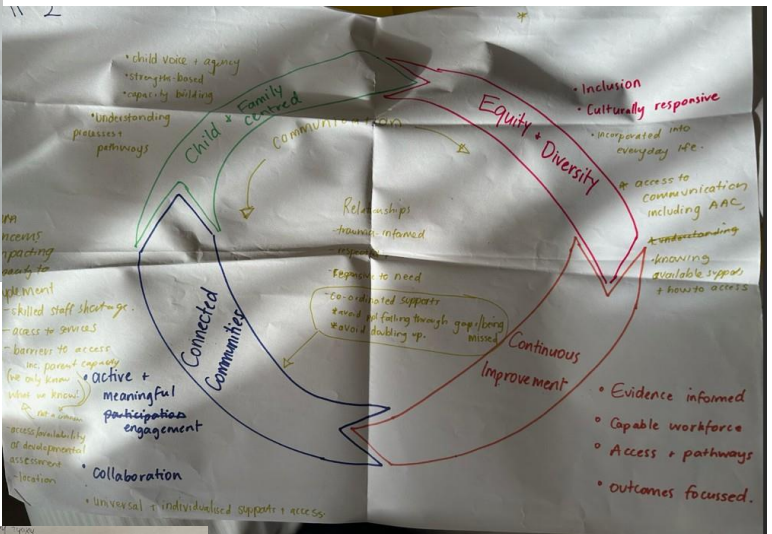 • child voice + agency
• strengths-based
• capacity building
• Understanding
processes +
pathways
Child + Family
centred
communication
Equity + Diversity
• Inclusion
• Culturally responsive
• incorporated into
everyday life.
* access to
communication
including AAC,
understanding
• knowing
available supports
+ how to access
Relationships
- trauma informed
- Responsive to need
- co-ordinated supports
* avoid falling through gaps/being
missed
* avoid doubling up.
Connected
Communities
Continuous
Improvement
• Evidence informed
• Capable workforce
• Access + pathways
• outcomes focussed.
- skilled staff shortage.
- access to services
- barriers to access
inc. parent capacity
(we only know
what we know)
- access/availability
of developmental
assessment
- location
• active +
meaningful
participation
engagement
• collaboration
• universal + individualised supports + access.